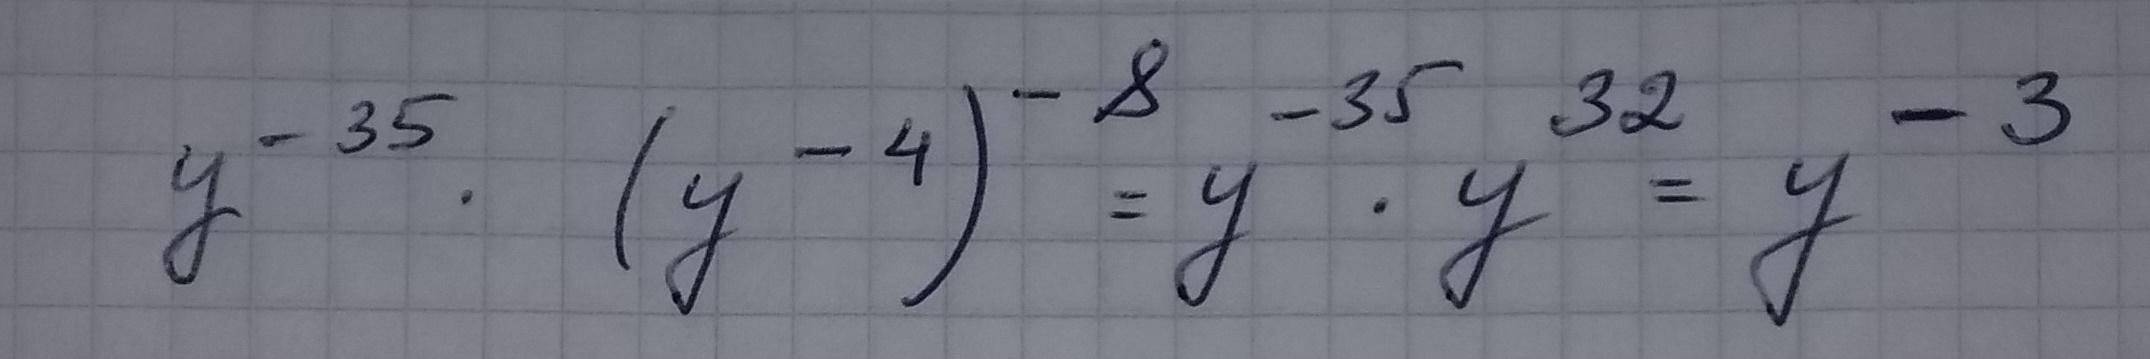 y^{-35} · (y^{-4})^{-8} = y^{-35} · y^{32} = y^{-3}